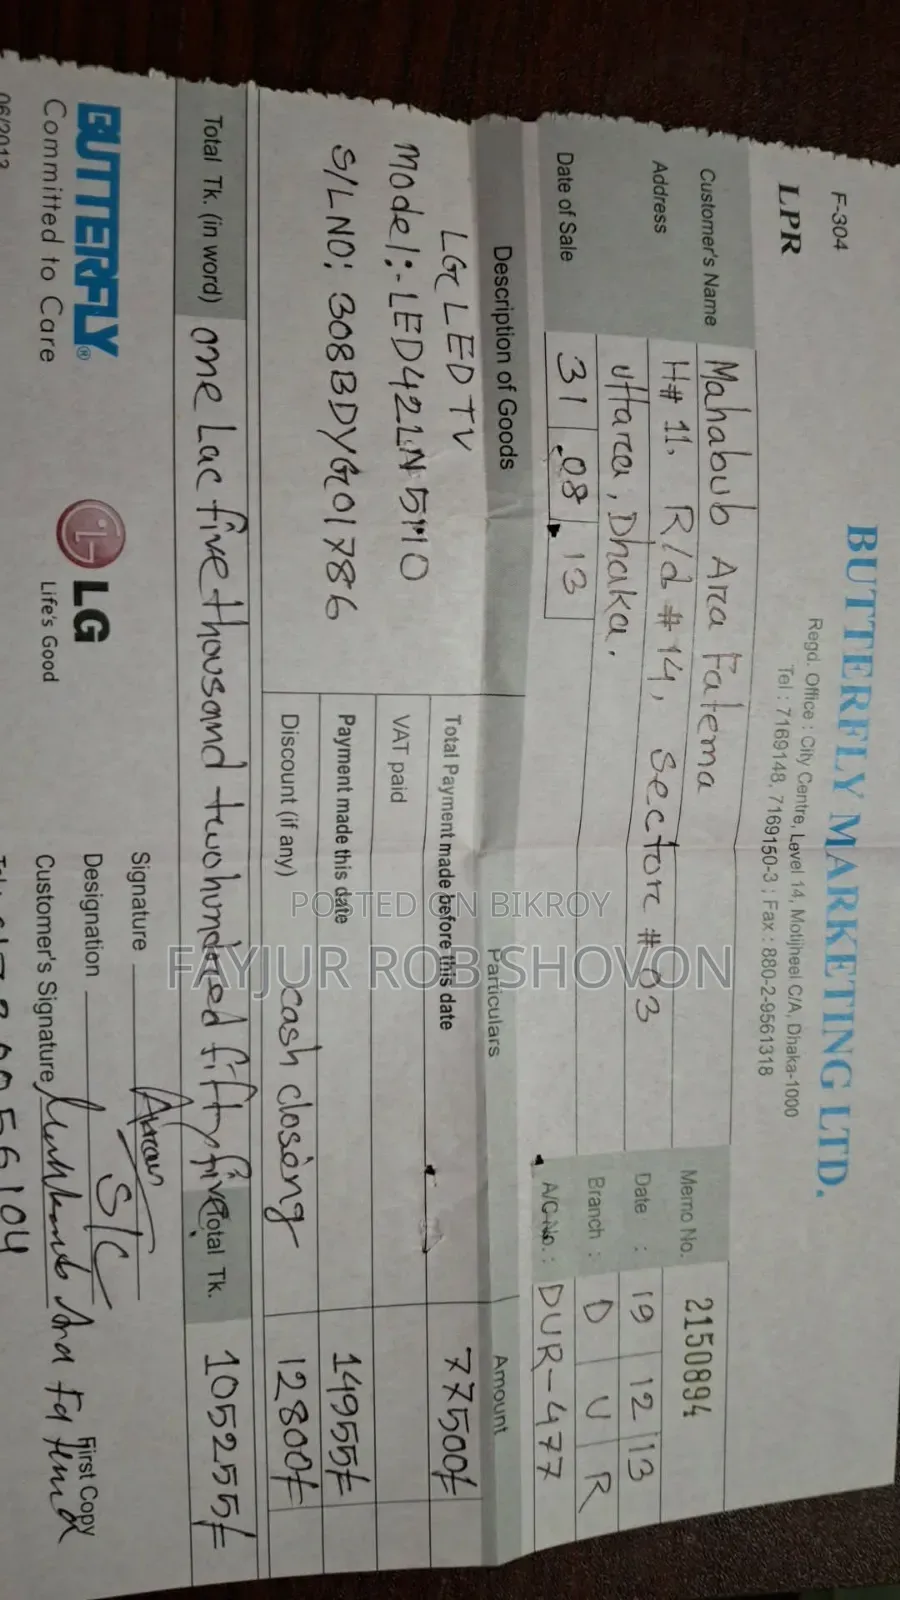 F-304
LPR
BUTTERFLY MARKETING LTD.
Regd. Office : City Centre, Level 14, Motijheel C/A, Dhaka-1000
Tel : 7169148, 7169150-3 ; Fax : 880-2-9561318
Customer's Name Mahabub Ara Fatema
Memo No. 2150894
Address H# 11, R/d # 14, Sector # 03
Uttara, Dhaka.
Date : 19 12 13
Branch : D U R
Date of Sale 31 08 13
A/C No. : DUR-477
Description of Goods Particulars Amount
LG LED TV
Model:-LED42LN5110
S/LNO: 308BDYG01786
Total Payment made before this date 77500/=
VAT paid
Payment made this date 14955/=
Discount (if any) cash closing 12800/=
Total Tk. (in word) one Lac five thousand two hundred fifty five Total Tk. 105255/=
BUTTERFLY®
Committed to Care
LG
Life's Good
Signature
Designation S/C
Customer's Signature
First Copy
06/2013
POSTED ON BIKROY
FAYJUR ROB SHOVON